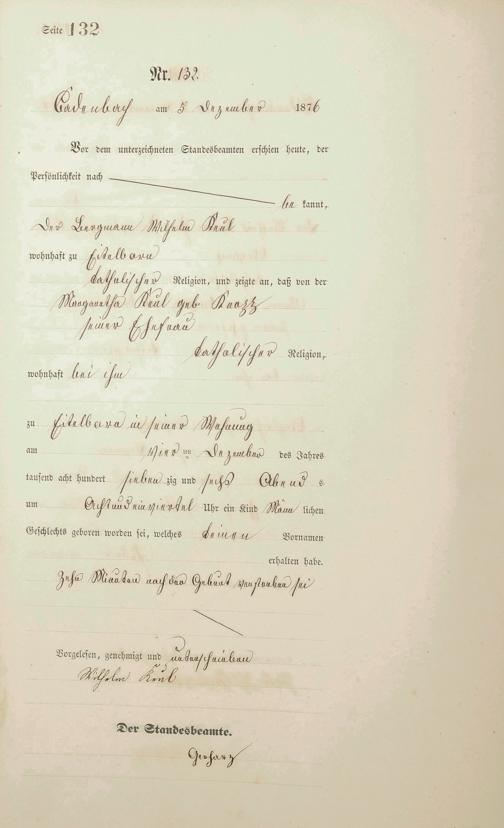 Seite 132
Nr. 132.
Cadenbach am 5 Dezember 1876
Vor dem unterzeichneten Standesbeamten erschien heute, der
Persönlichkeit nach
be kannt,
Der Bergmann Wilhelm Keul
wohnhaft zu Eitelborn
katholischer Religion, und zeigte an, daß von der
Margaretha Keul geb
seiner Ehefrau
katholischer Religion,
wohnhaft bei ihm
zu Eitelborn in seiner Wohnung
am vier ten Dezember des Jahres
tausend acht hundert sieben zig und sechs Abend s
um Acht und ein viertel Uhr ein Kind Männ lichen
Geschlechts geboren worden sei, welches keinen Vornamen
erhalten habe.
Zehn Minuten nach der Geburt verstorben sei
Vorgelesen, genehmigt und unterschrieben
Wilhelm Keul
Der Standesbeamte.
Gerharz